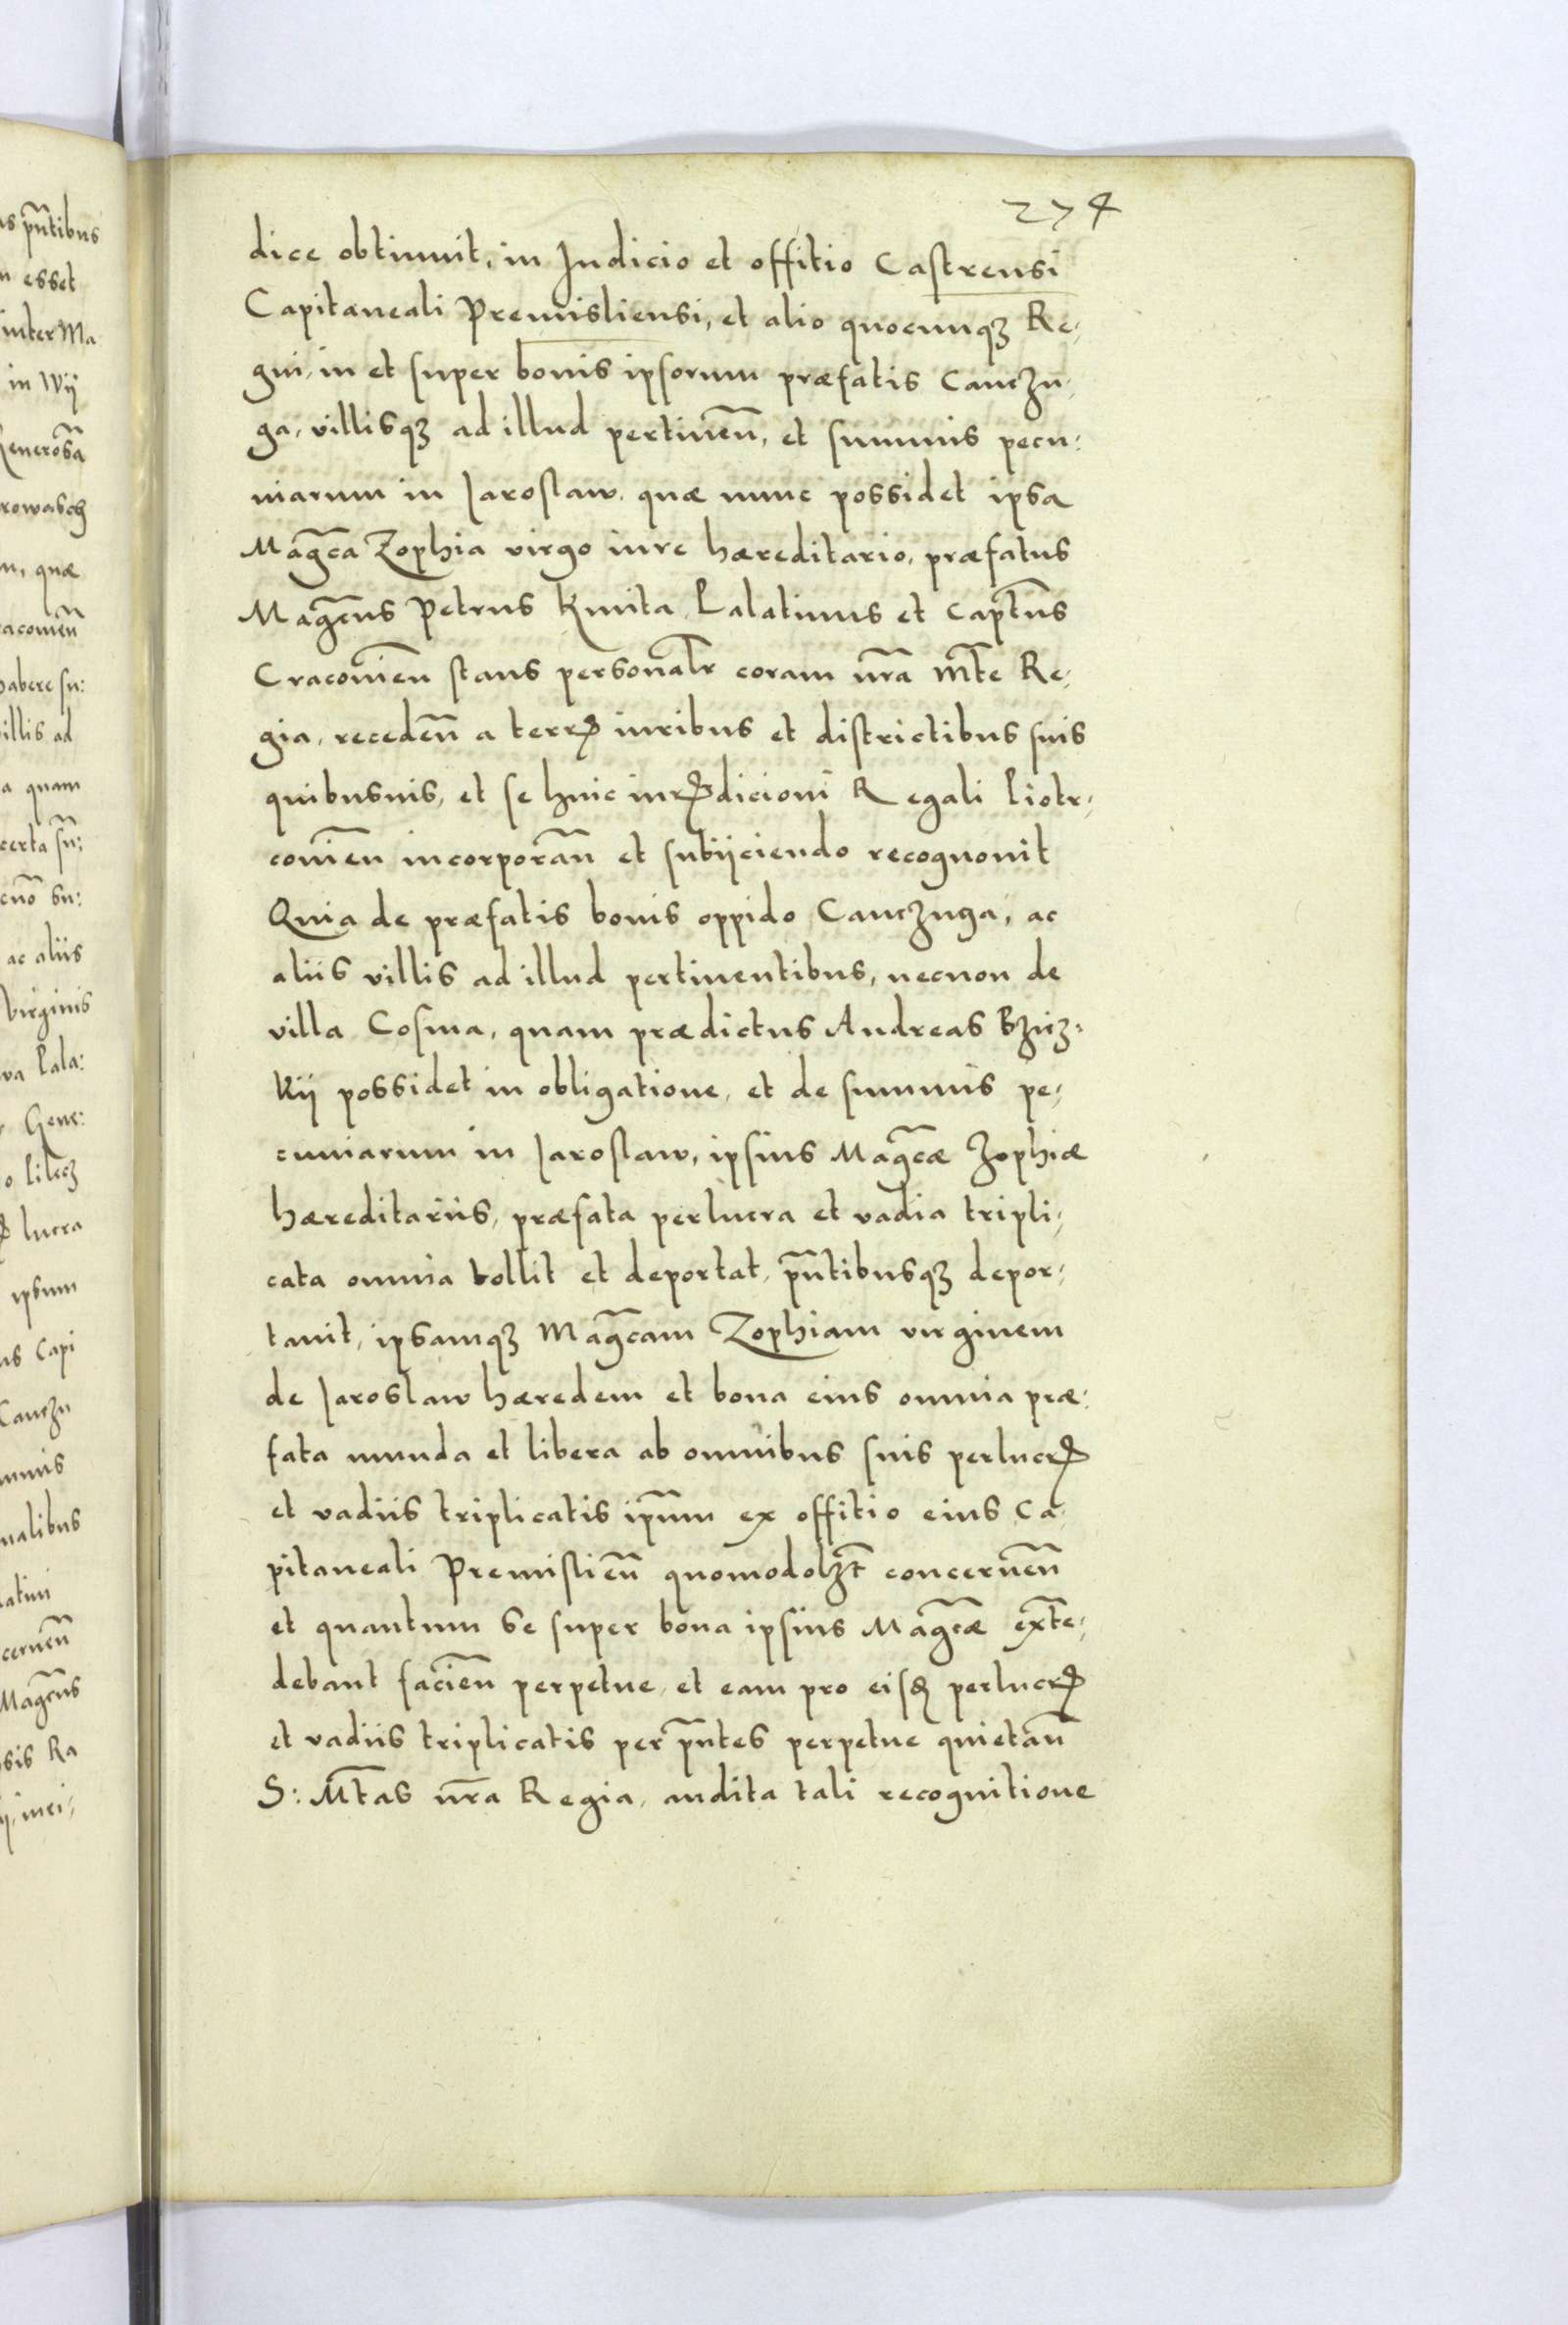 274
dice obtinuit, in Judicio et offitio Castrensi
Capitaneali Premisliensi, et alio quocunqꝫ Re,
gni, in et super bonis ipsorum præfatis Canczu,
ga, villisqꝫ ad illud pertineñ, et summis pecu:
niarum in Jaroslaw, quæ nunc possidet ipsa
Mag̃ca Zophia virgo iure hæreditario, præfatus
Mag̃cus Petrus Kmita Palatinus et Capt̃nus
Cracovieñ stans personal̃r coram nr̃a Mt̃e Re,
gia, recedeñ a terrꝭ iuribus et districtibus suis
quibusvis, et se huic iurꝭdicioni Regali Piotr,
covieñ incorporañ et subijciendo recognovit
Quia de præfatis bonis oppido Canczuga, ac
aliis villis ad illud pertinentibus, necnon de
villa Cosina, quam prædictus Andreas Bziczꝫ:
kij possidet in obligatione, et de summis pe,
cuniarum in Jaroslaw, ipsius Mag̃cæ Zophiæ
hæreditariis, præfata perlucra et vadia tripli,
cata omnia tollit et deportat, pñtibusqꝫ depor,
tauit, ipsamqꝫ Mag̃cam Zophiam virginem
de Jaroslaw hæredem et bona eius omnia præ:
fata munda et libera ab omnibus suis perlucrꝭ
et vadiis triplicatis ip̃um ex offitio eius Ca
pitaneali Premislieñ quomodolꝫt concerneñ
et quantum se super bona ipsius Mag̃cæ ext̃e,
debant facieñ perpetue, et eam pro eisꝺ perlucrꝭ
et vadiis triplicatis per pñtes perpetue quietañ
S: Mt̃as nr̃a Regia, audita tali recognitione
ns pñtibus
esset
inter Ma
in Wij
Generosã
quæ
habere su:
illis ad
a quam
certa
ac aliis
virginis
Pala:
Gene:
lucra
ipsum
Capi
Canczu
cerneñ
Mag̃cus
Ra